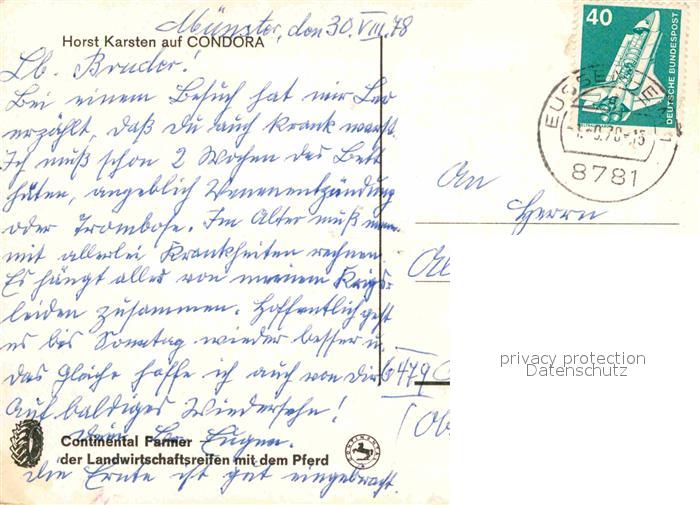 Münster, den 30.VIII.78
Horst Karsten auf CONDORA
Lb. Bruder!
Bei einem Besuch hat mir Leo
erzählt, daß Du auch krank warst.
Ich muß schon 2 Wochen das Bett
hüten, angeblich Venenentzündung
oder Trombose. Im Alter muß man
mit allerlei Krankheiten rechnen.
Es hängt alles von meinem Kriegs-
leiden zusammen. Hoffentlich geht
es bis Sonntag wieder besser u.
das Gleiche hoffe ich auch von Dir.
Auf baldiges Wiedersehn!
Dein Br. Eugen.
Continental Farmer
der Landwirtschaftsreifen mit dem Pferd
Die Ernte ist gut eingebracht.
40
DEUTSCHE BUNDESPOST
8781
An
Herrn
6479
(Ob
CONTINENTAL
privacy protection
Datenschutz